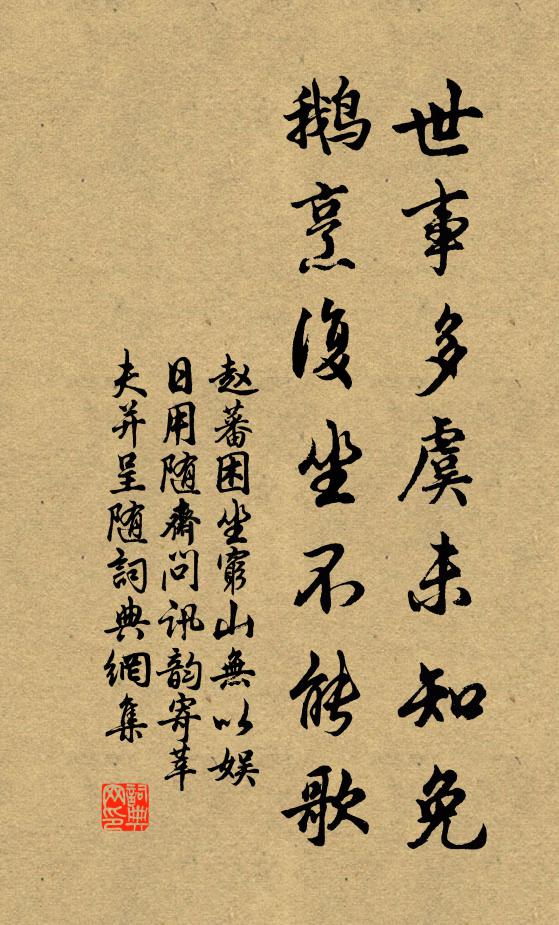 世事多虞未知免
鹅烹復坐不能歌
赵蕃困坐窮山無以娱
日用随齋問訊韵寄莘
夫并呈随詞典網集
詞典网印